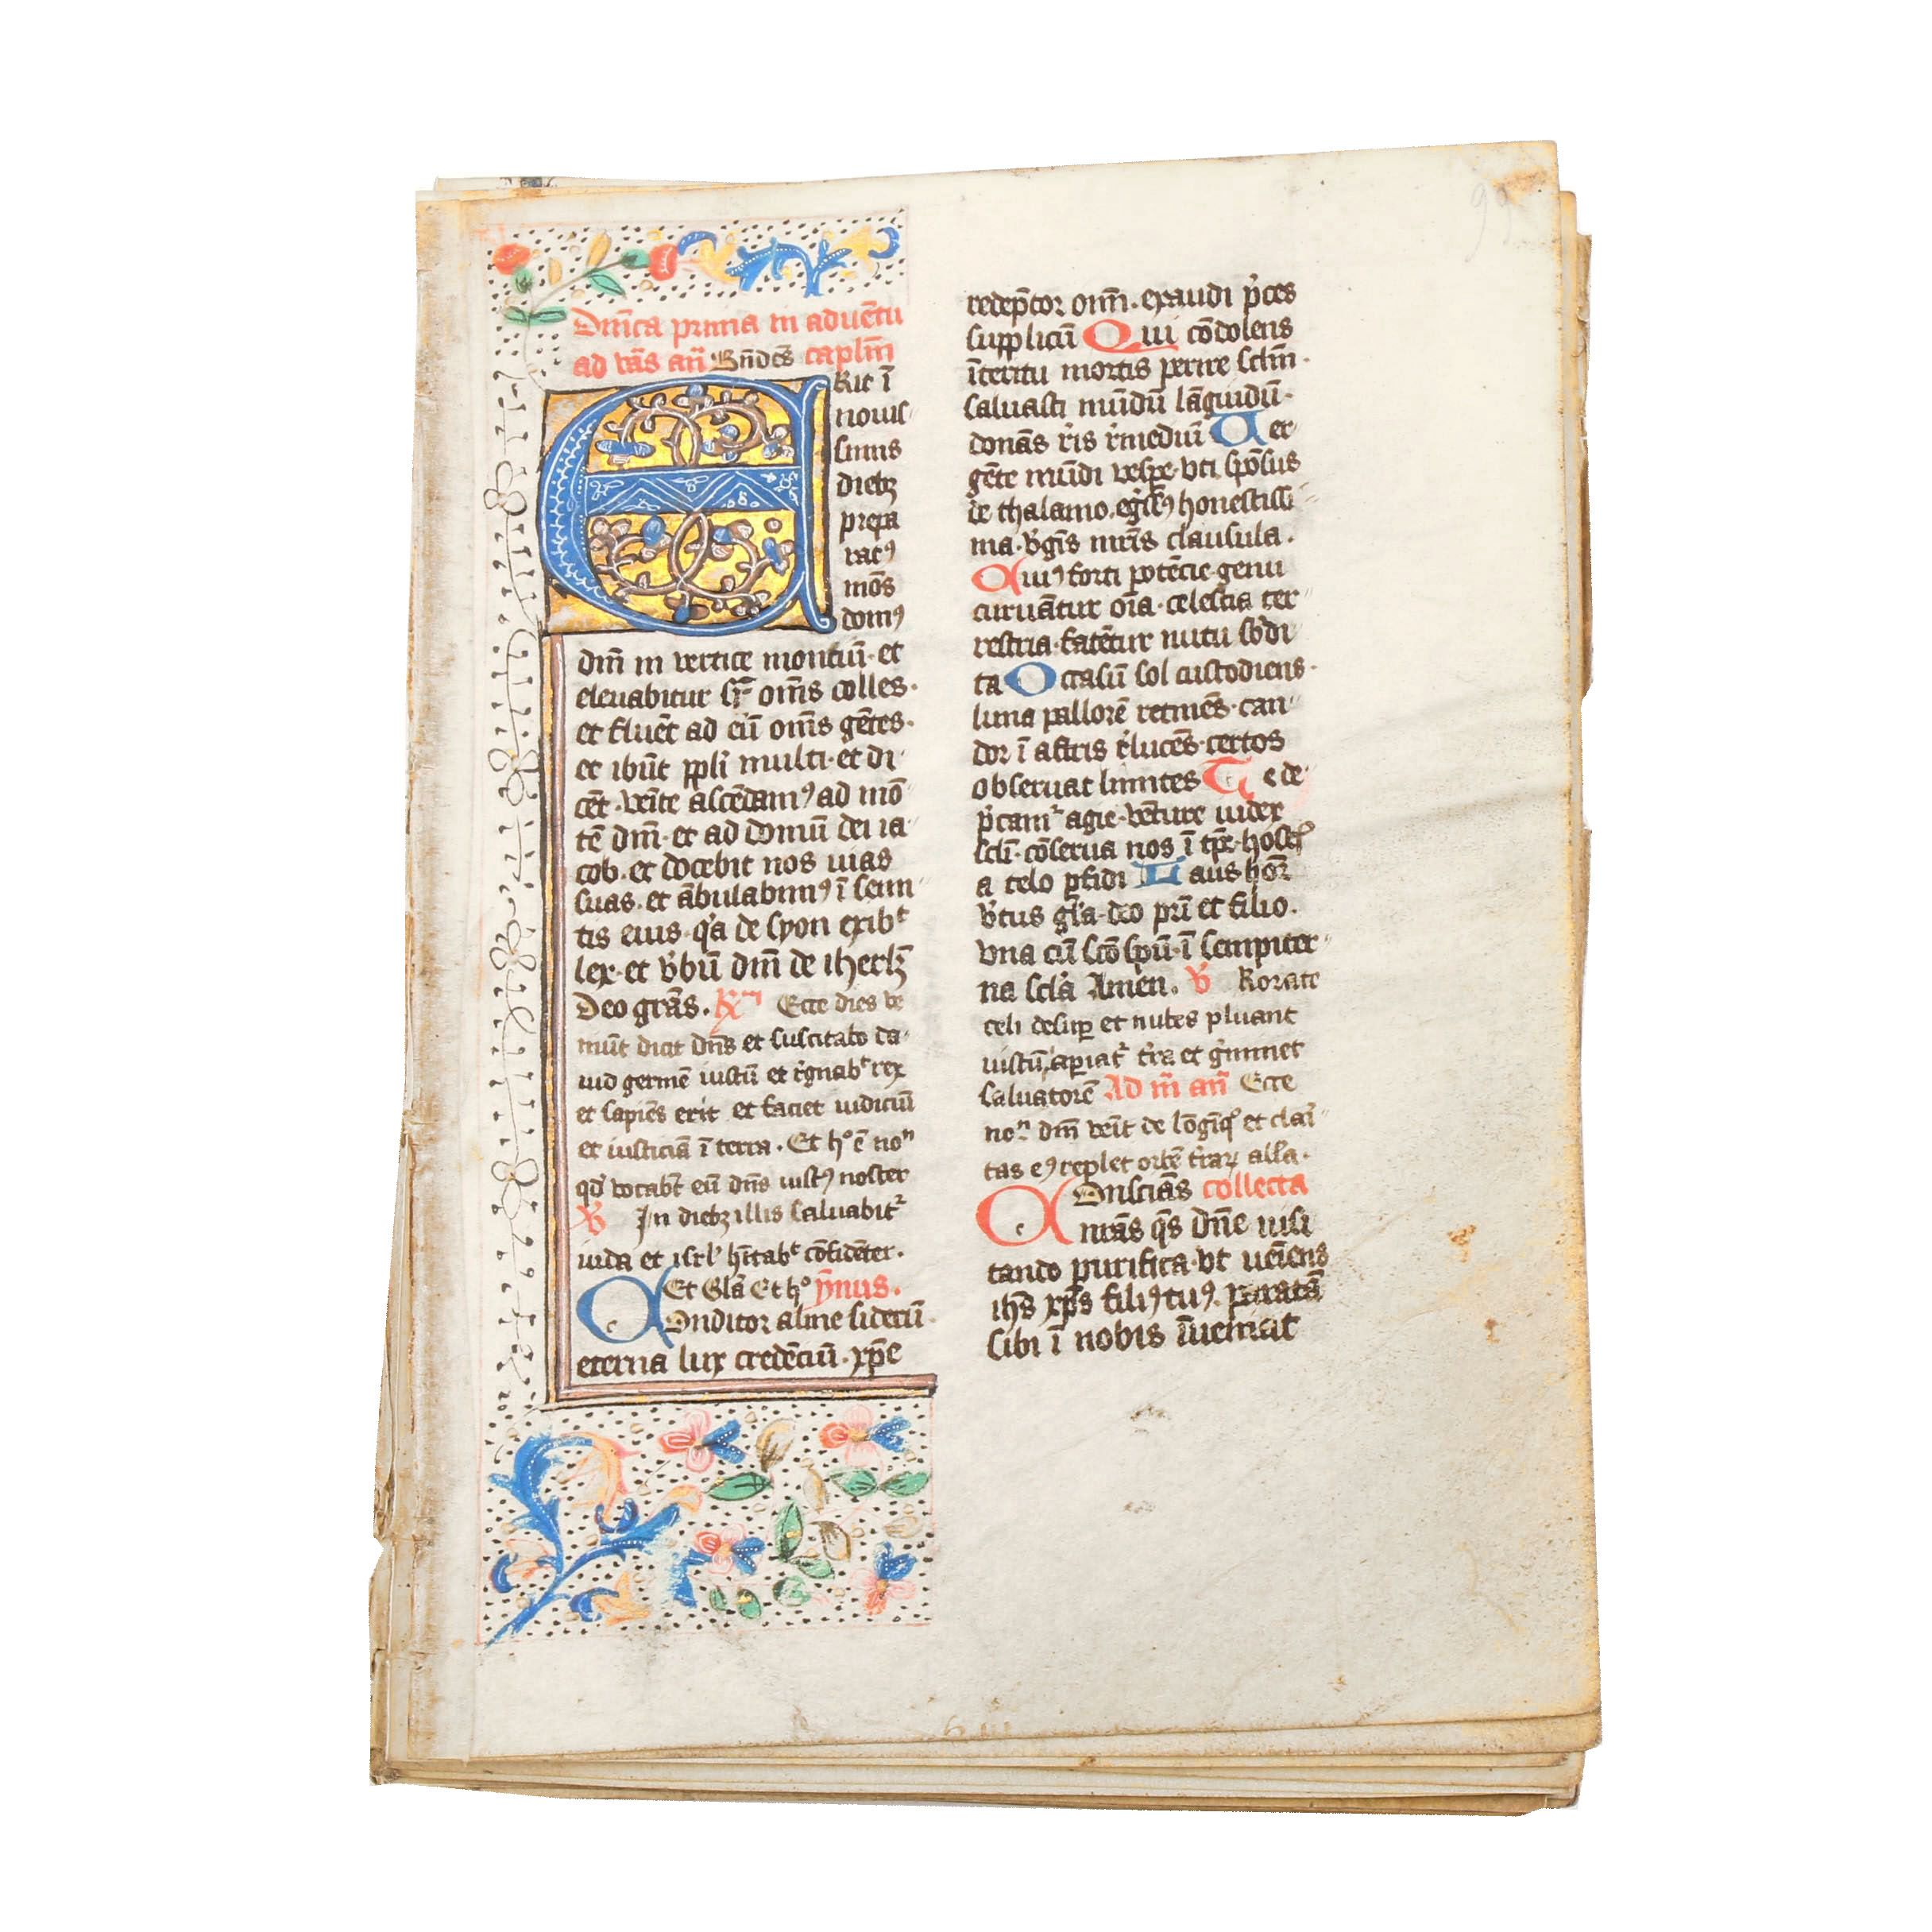 Dn̄ica prima in aduētu
ad vās an̄ Bn̄dēs caplm̄
ERit ī
nouis-
simis
dieb⁊
prepa
ratꝰ
mōs
domꝰ
dm̄ in vertice montiū· et
eleuabitur sr̄ om̄s colles·
et fluēt ad eū om̄s gētes·
et ibūt ppli multi· et di
cēt· veīte ascēdamꝰ ad mō
tē dm̄· et ad domū dei ia-
cob· et docebit nos uias
suas· et ābulabimꝰ ī semi
tis eius· qa de syon exibᵗ
lex· et v̓bū dm̄ de iherl̄m
Deo grās. R̸ᵐ Ecce dies ve
niūt dicit dn̄s et suscitabo da-
uid germē iustū et r̓gnabᵗ rex
et sapiēs erit et faciet iudiciū
et iusticiā ī terra. Et hᵒ ē noⁿ
qd̓ vocabt̄ eū dn̄s iustꝰ noster
V̸ In dieb⁊ illis saluabitᵣ
iuda et isrl̓ hītabᵗ cōfidēter.
Et Glā Et hᵒ ȳmus.
COnditor alme siderū
eterna lux credēciū· xp̄e
redēptor om̄. exaudi p̓ces
supplicū Qui cōdolens
īteritu mortis perire sclm̄·
saluasti mūdū lāguidū·
donās r̓is r̓mediū Uer
gēte mūdi vespe· vti spōsus
de thalamo. egr̄ssꝰ honestissi
ma· v̓gīs mr̄is clausula.
Cuiꝰ forti potēcie· genu
curuātur oīa· celestia ter-
restria· fatētur nutu sb̓di
ta Occasū sol custodiens·
luna pallorē retinēs· can
dor ī astris r̓lucēs· certos
obseruat limites Te de-
p̓camᵣ agie· vēture iudex
scli· cōserua nos ī tp̄e· hostꝭ
a telo pfidi Laus hōr
v̓tus glā· deo pr̄i et filio.
vna cū scō spū· ī sempiter
na sclā Amen. V̸ Rorate
celi desup et nubes pluant
iustū apiatᵣ tr̓a et g̓minet
saluatorē Ad m̄ an̄ Ecce
noⁿ· dm̄ veīt de lōgīqͦ et clari
tas eꝰ replet orbē tr̓arꝝ all̓a·
COnsciās collecta
nr̄as qs̄ dn̄e uisi
tando purifica· vt ueīens
ih̄s xp̄s filiꝰ tuꝰ. paratā
sibi ī nobis īueniat